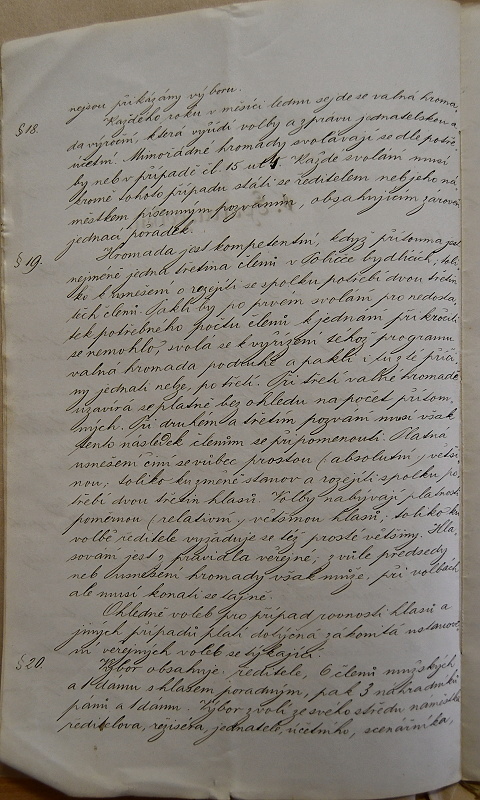 nejsou přikázány výboru.
§ 18. Každého roku v měsíci lednu sejde se valná hroma-
da výroční, která vyřídí volby a zprávu jednatelskou a
účetní. Mimořádné hromady svolávají se dle potře-
by neb v případě čl. 15 ut 4. Každé svolání musí
kromě tohoto případu státi se ředitelem neb jeho ná-
městkem písemným pozváním, obsahujícím zároveň
jednací pořádek.
§ 19. Hromada jest kompetentní, když přítomna jest
nejméně jedna třetina členů v Poličce bydlících, toli-
ko k usnešení o rozejití se spolku potřebí dvou třetin
těch členů. Pakli by po prvém svolání pro nedosta-
tek potřebného počtu členů k jednání přikročiti
se nemohlo, svolá se k vyřízení téhož programu
valná hromada podruhé a pakli i tu z té příči-
ny jednati nelze, potřetí. Při třetí valné hromadě
uzavírá se platně bez ohledu na počet přítom-
ných. Při druhém a třetím pozvání musí však
tento následek členům se připomenouti. Platná
usnešení činí se vůbec prostou (absolutní) větši-
nou; toliko ku změně stanov a rozejití spolku po-
třebí dvou třetin hlasů. Volby nabývají platnosti
poměrnou (relativní) většinou hlasů; toliko ku
volbě ředitele vyžaduje se též prosté většiny. Hla-
sování jest z pravidla veřejné; z vůle předsedy
neb usnešení hromady však může, při volbách
ale musí konati se tajně.
Ohledně voleb pro případ rovnosti hlasů a
jiných případů platí dotyčná zákonitá ustanove-
ní veřejných voleb se týkající.
§ 20. Výbor obsahuje: ředitele, 6 členů mužských
a 1 dámu s hlasem poradným, pak 3 náhradníků
pánů a 1 dámu. Výbor zvolí ze svého středu náměstka
ředitelova, režiséra, jednatele, účetního, scenáristka,